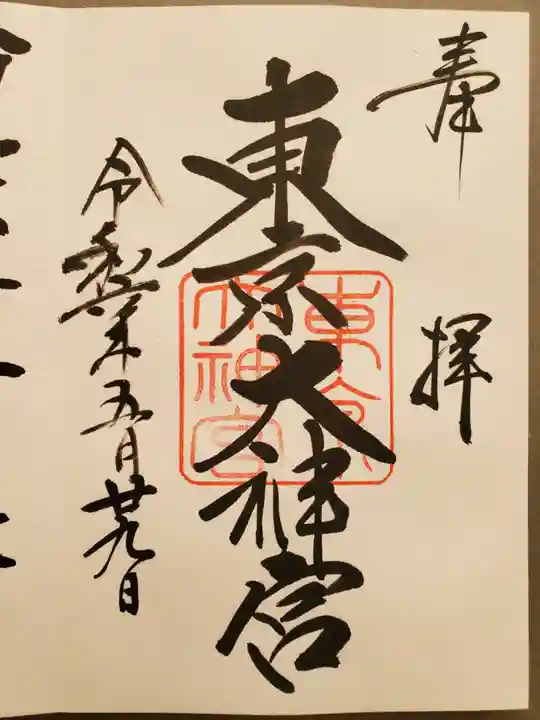 奉拝
東京大神宮
東京大神宮
五月廿九日